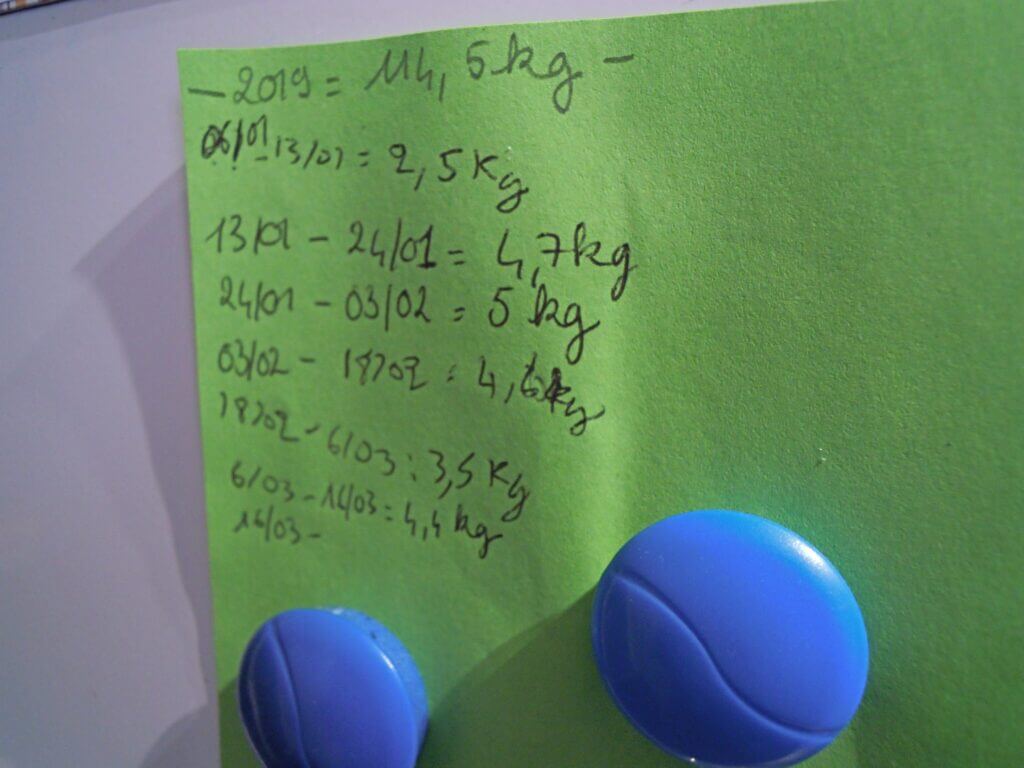 - 2019 = 114,5 kg -
06/01 - 13/01 = 2,5 Kg
13/01 - 24/01 = 4,7 kg
24/01 - 03/02 = 5 kg
03/02 - 18/02 = 4,6 kg
18/02 - 6/03 = 3,5 Kg
6/03 - 14/03 = 4,4 kg
14/03 -